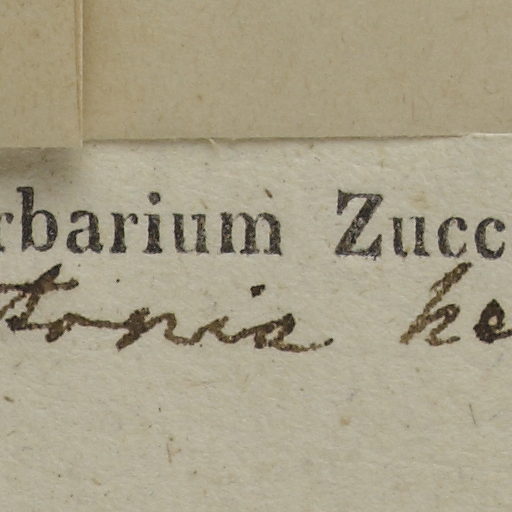 rbarium Zucc
tonia he